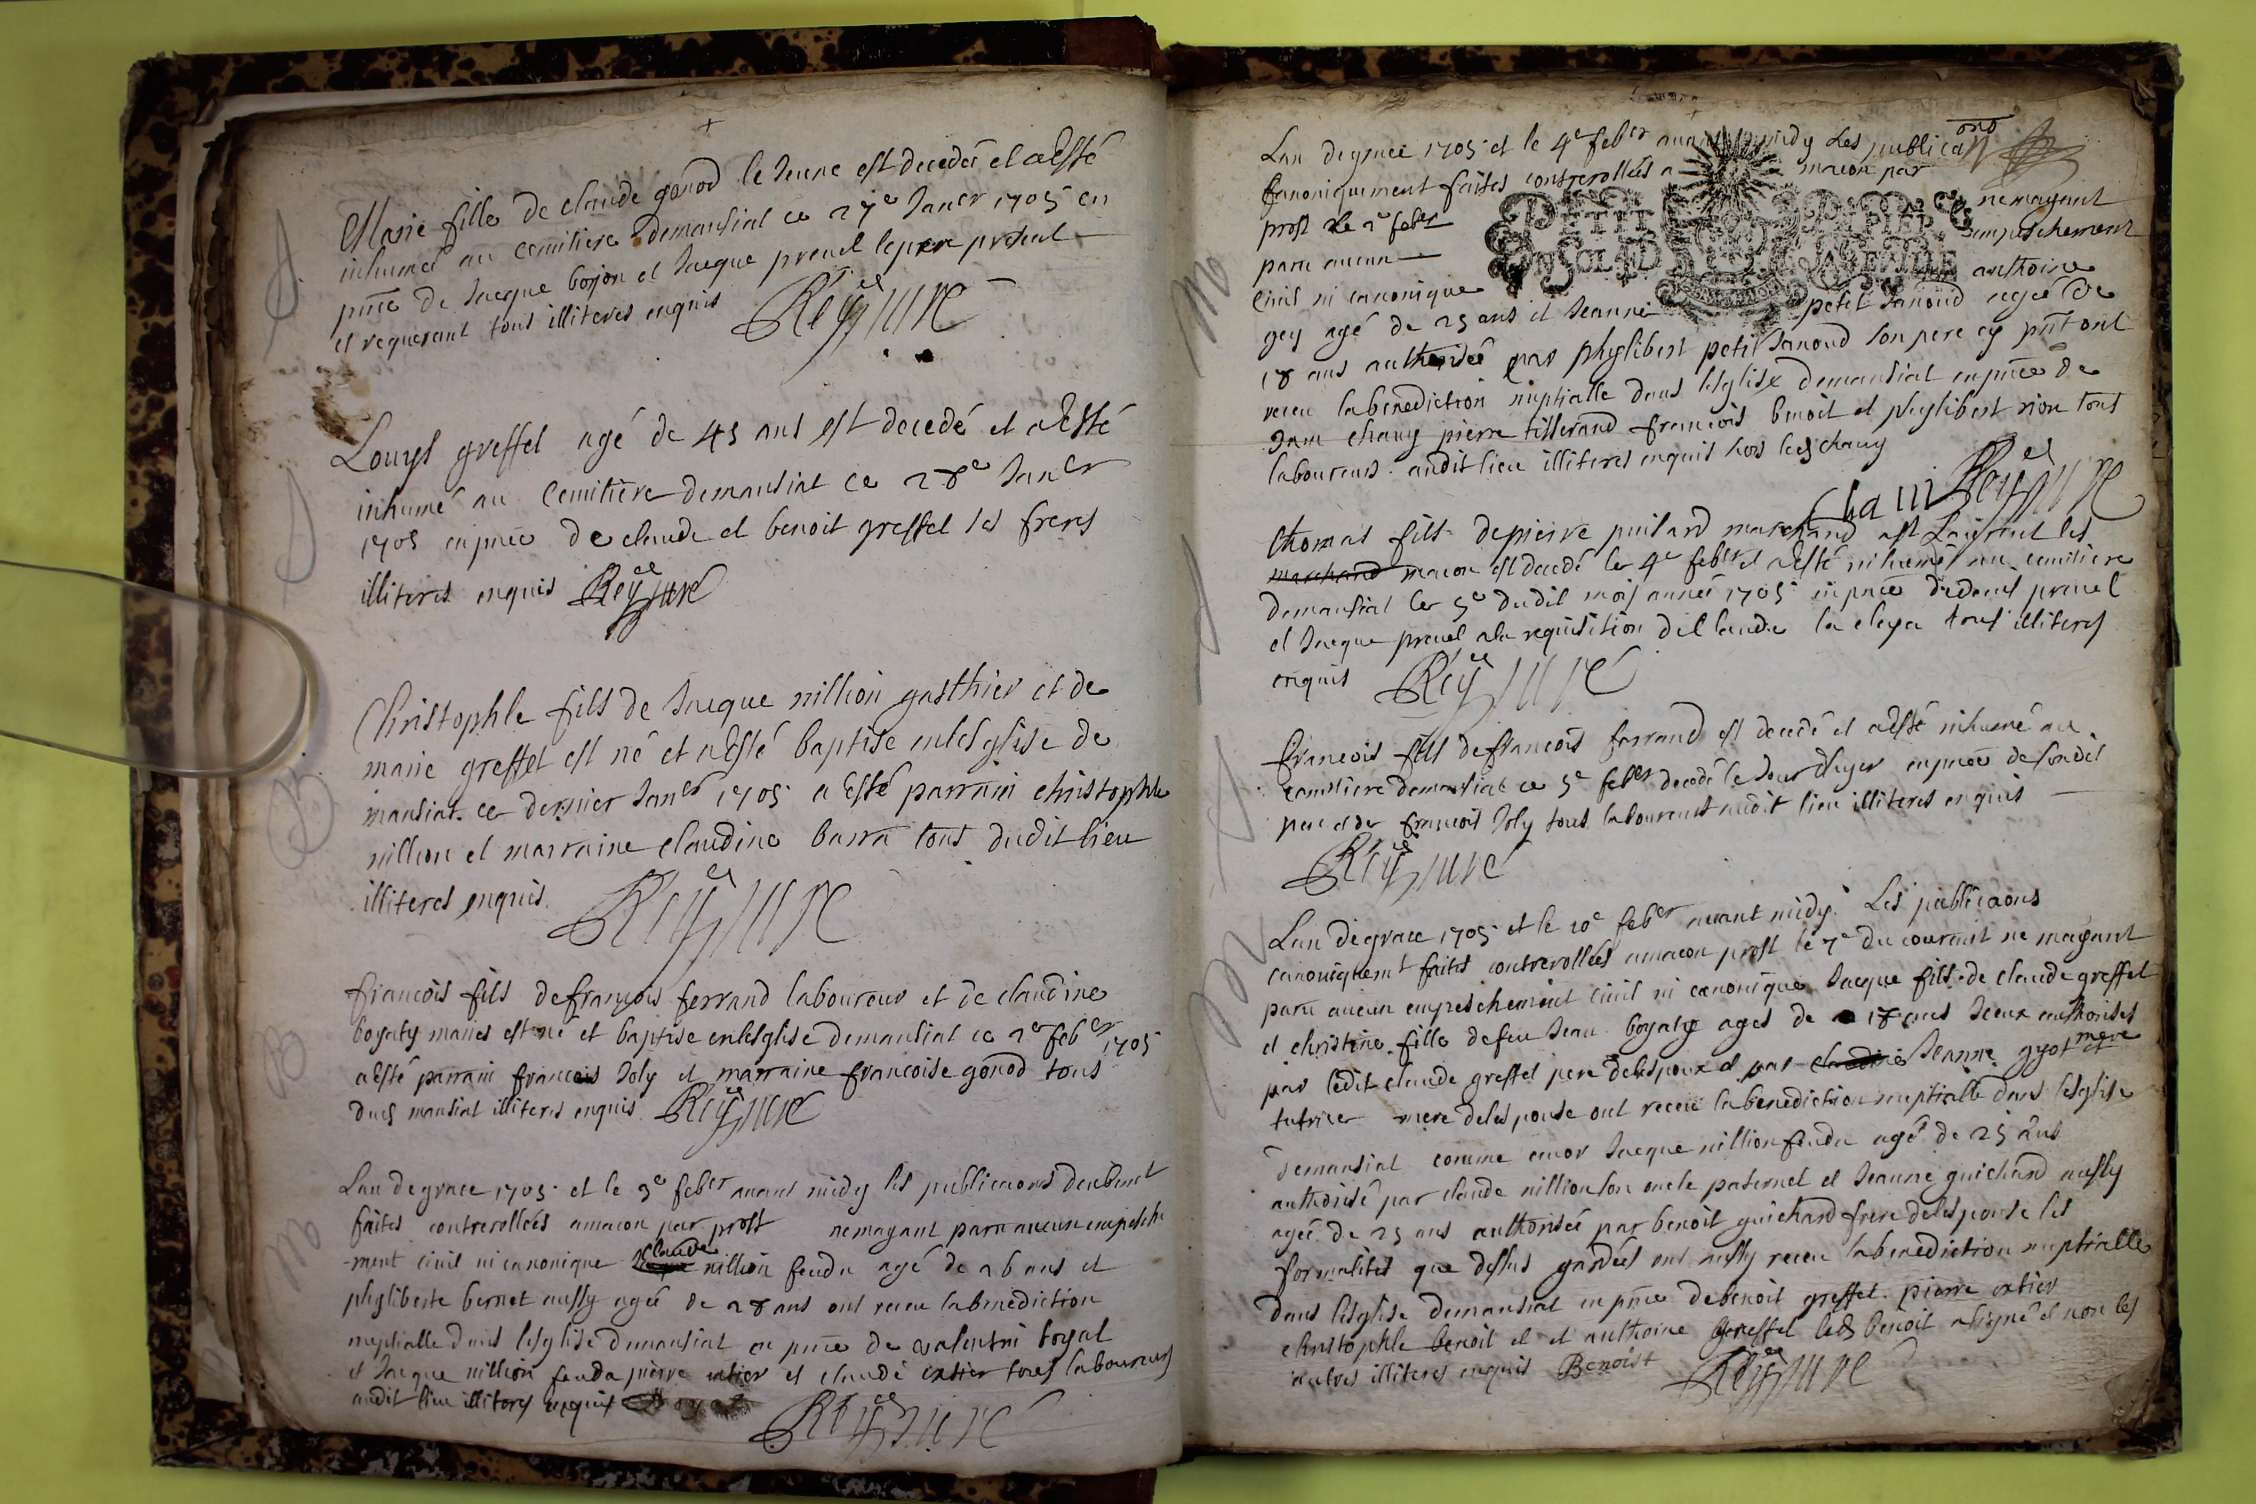 Marie fille de claude gonod le Jeune est decedée et a Esté
inhumée au cemitiere demansiat ce 27e Janer 1705 en
pnce de Jacque borjon et Jacque preuel le pere present
et requerant tous illiteres enquis Rey curé
Louys greffet agé de 45 ans est decedé et a Esté
inhumé au Cemitiere demansiat ce 28e Janer
1705 en pnce de claude et benoit greffet ses freres
illiteres enquis Rey curé
Christophle fils de Jacque nillion gasthier et de
marie greffet est né et a Esté baptise en lesglise de
mansiat ce dernier Janer 1705 a Esté parrain christophle
nillion et marraine claudine barra tous dudit lieu
illiteres enquis Rey curé
francois fils de françois ferrand laboureur et de claudine
boyaty mariés est né et baptise en lesglise demansiat ce 2e feber 1705
a Esté parrain francois Joly et marraine francoise gonod tous
dud mansiat illiteres enquis Rey curé
Lan de grace 1705 et le 3e feber auant midy les publicaons deubmt
faites contrerollées a macon par prost nemayant paru aucun empesche
-ment ciuil ni canonique claude nillion feudu agé de 26 ans et
phyliberte bernet aussy agée de 28 ans ont receu la benediction
nuptialle dans lesglise demansiat en pnce de valentin boyat
et Jacque nillion feuda pierre et claude tous laboureurs
audit lieu illiteres enquis Boyat Rey curé
Lan de grace 1705 et le 4e feber auant midy Les publicaons
Canoniquement faites contrerollées a macon par
prost le 2e feber nemayant
paru aucun empeschement
Ciuil ni canonique anthoine
PETIT PAPIER
gey agé de 25 ans et Jeanne petit Janoud agée de
18 ans authorisée par phylibert petit Janoud son pere cy pnt ont
receu la benediction nuptialle dans lesglise demansiat en pnce de
Jean chany pierre tillerand francois benoit et phylibert rion tous
laboureurs audit lieu illiteres enquis hors led chany
Chani Rey curé
thomas fils de pierre puilard marchand
marchand macon est decedé le 4e feber et a Esté inhumé au cemitiere
demansiat le 5e dudit mois année 1705 en pnce de preuel
et Jacque preuel a la requisition de Claude la claya tous illiteres
enquis Rey curé
francois fils de francois ferrand est decedé et a Esté inhumé au
cemitiere demansiat ce 5e feber decedé le Jour d'hyer en pnce de sondit
pere et de francois Joly tous laboureurs audit lieu illiteres enquis
Rey curé
Lan de grace 1705 et le 10e feber auant midy. Les publicaons
canoniquemt faites contrerollées a macon prost le 7e du courant ne mayant
paru aucun empeschement ciuil ni canonique Jacque fils de claude greffet
et christine fille de feu Jean boyaty ages de 18 ans Iceux authorisés
par ledit claude greffet pere delespoux et par claudine Jeanne gyot mere
tutrice mere delespouse ont receu la benediction nuptialle dans lesglise
demansiat comme encor Jacque nillion feuda agé de 25 ans
authorisé par claude nillion son oncle paternel et Jeanne guichard aussy
agée de 25 ans authorisée par benoit guichard frere delespouse les
formalités que dessus gardées ont aussy receu la benediction nuptialle
dans lesglise demansiat en pnce de benoit greffet pierre
christophle benoit et et anthoine greffet led benoit a signé et non les
autres illiteres enquis Benoist Rey curé